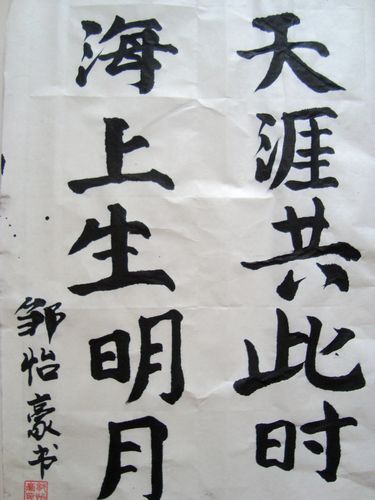 天涯共此时
海上生明月
邹怡豪书